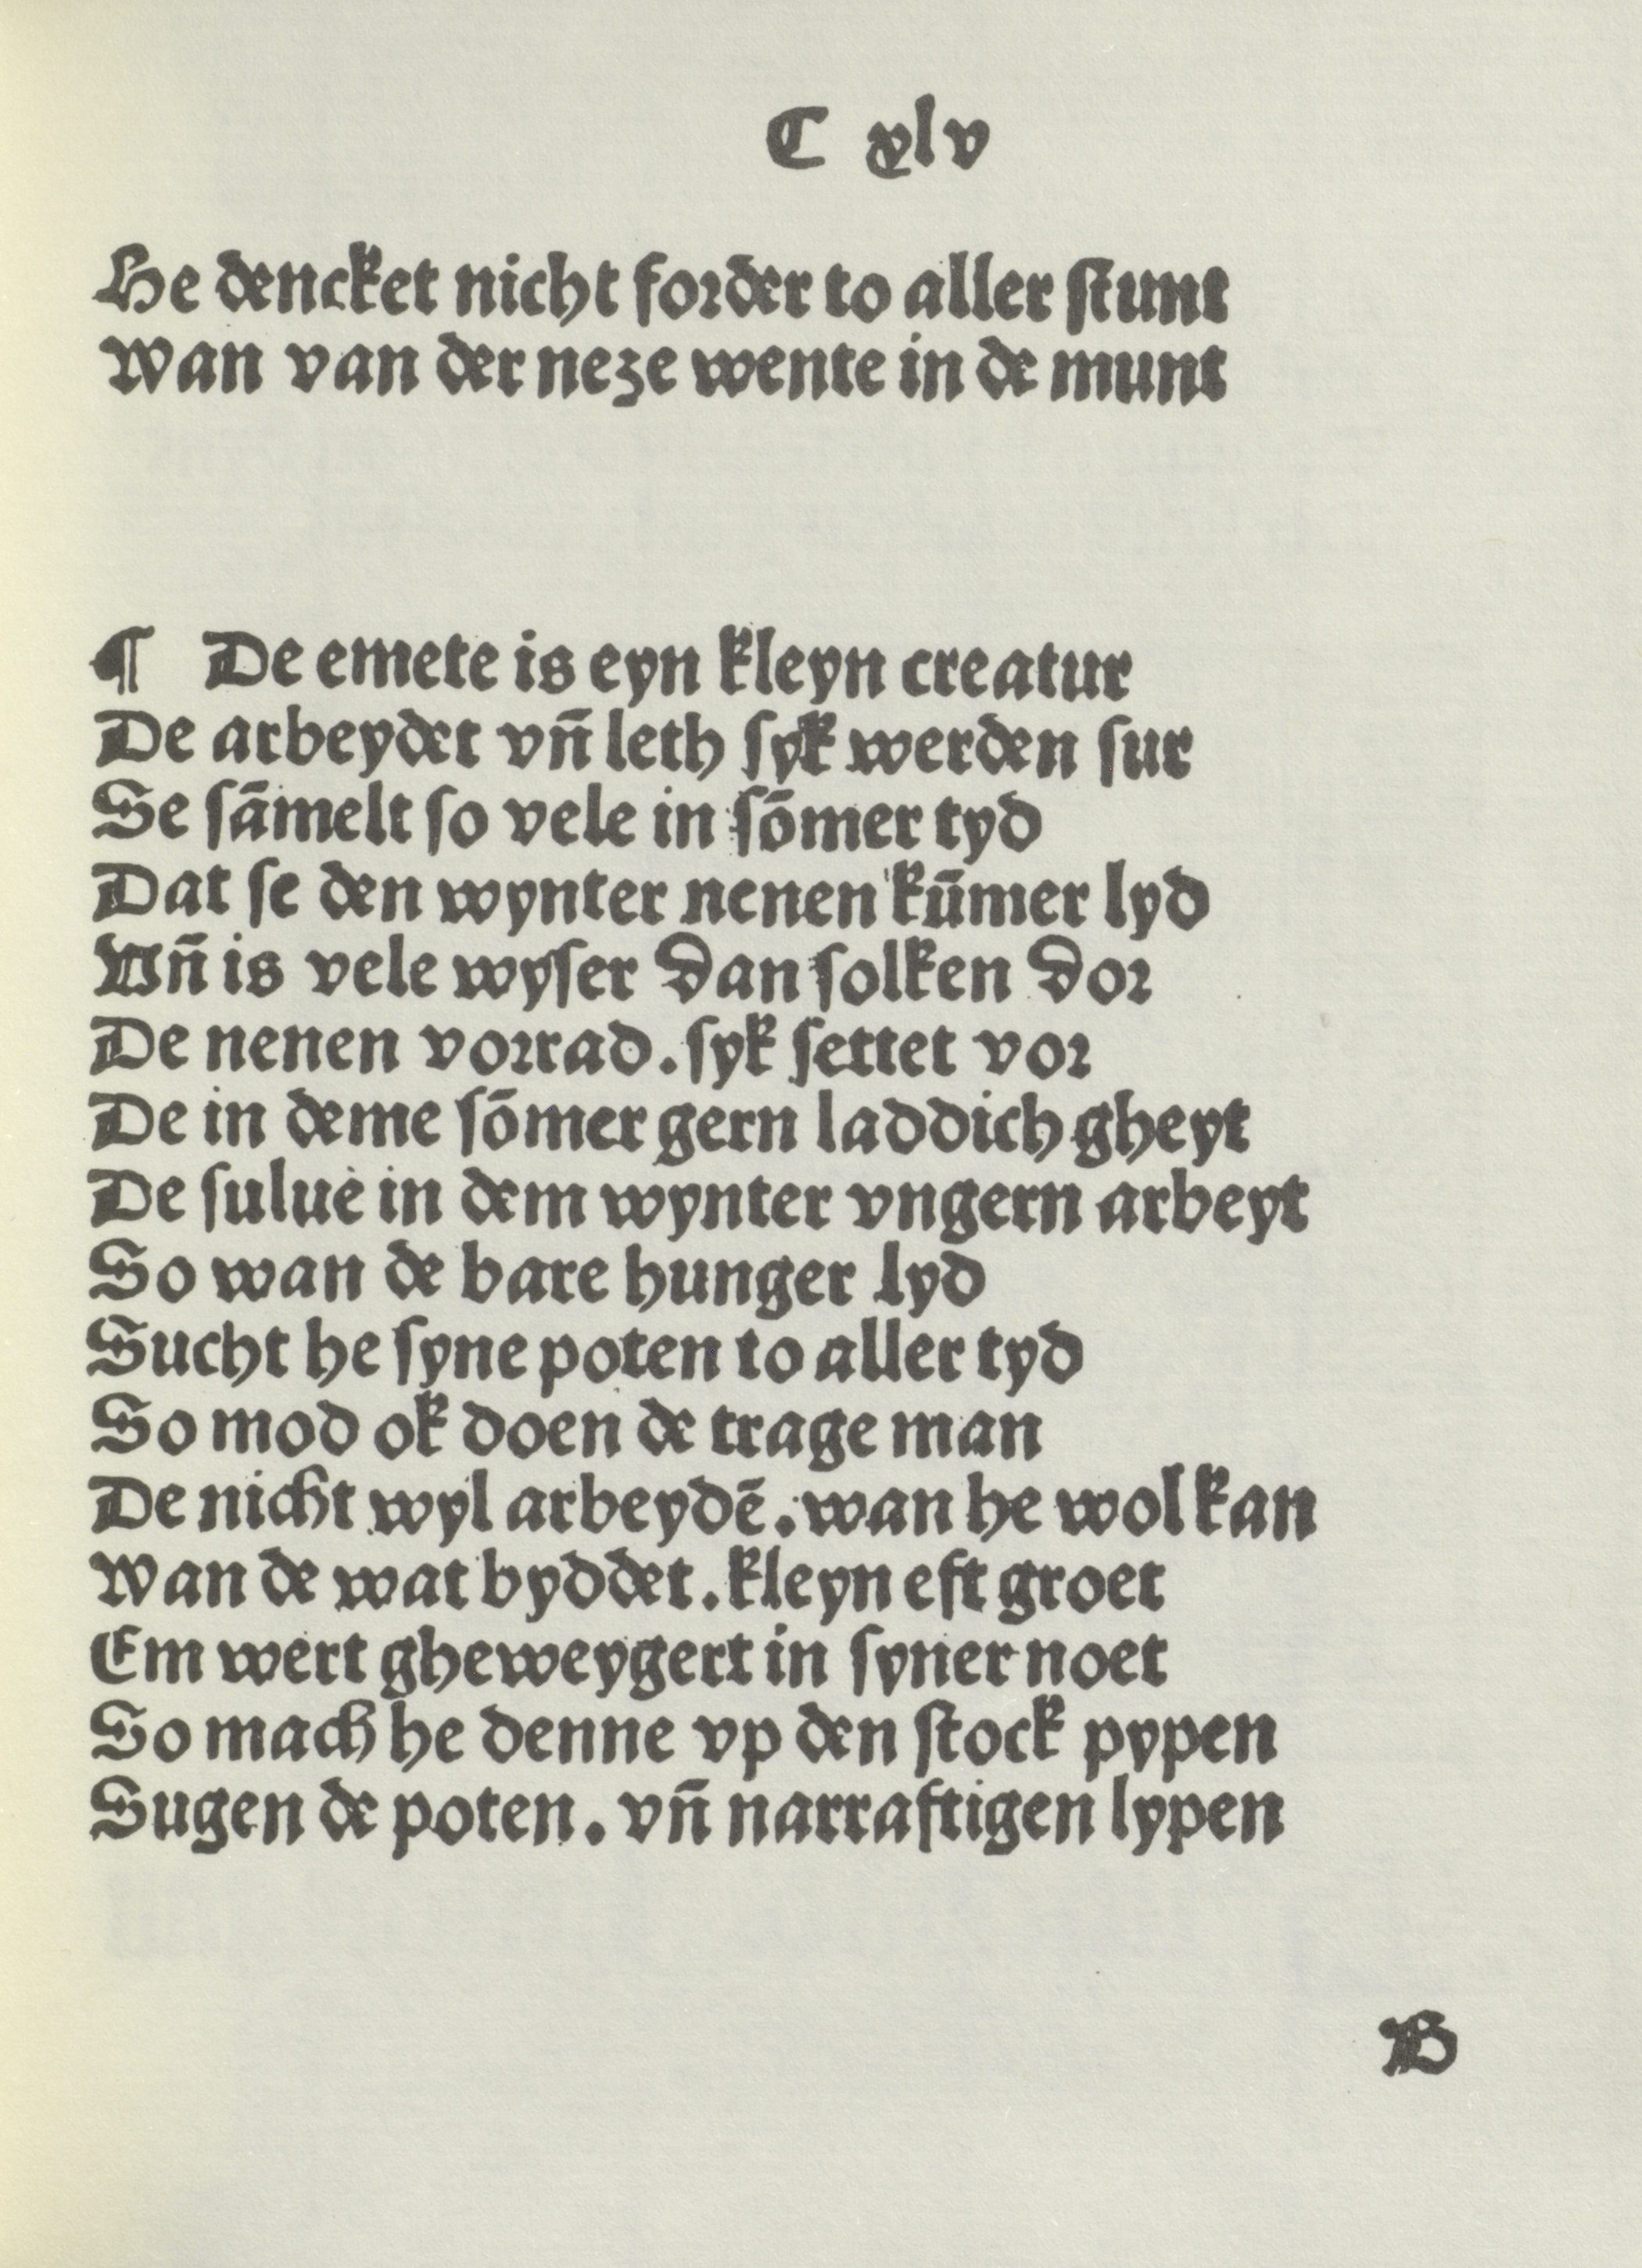 C xlv
He dencket nicht forder to aller stunt
Wan van der neze wente in de munt
¶ De emete is eyn kleyn creatur
De arbeydet vñ leth syk werden sur
Se sāmelt so vele in sōmer tyd
Dat se den wynter nenen kūmer lyd
Vñ is vele wyser dan solken dor
De nenen vorrad. syk settet vor
De in deme sōmer gern laddich gheyt
De sulue in dem wynter vngern arbeyt
So wan de bare hunger lyd
Sucht he syne poten to aller tyd
So mod ok doen de trage man
De nicht wyl arbeydē. wan he wol kan
Wan de wat byddet. kleyn eft groet
Em wert gheweygert in syner noet
So mach he denne vp den stock pypen
Sugen de poten. vñ narraftigen lypen
B